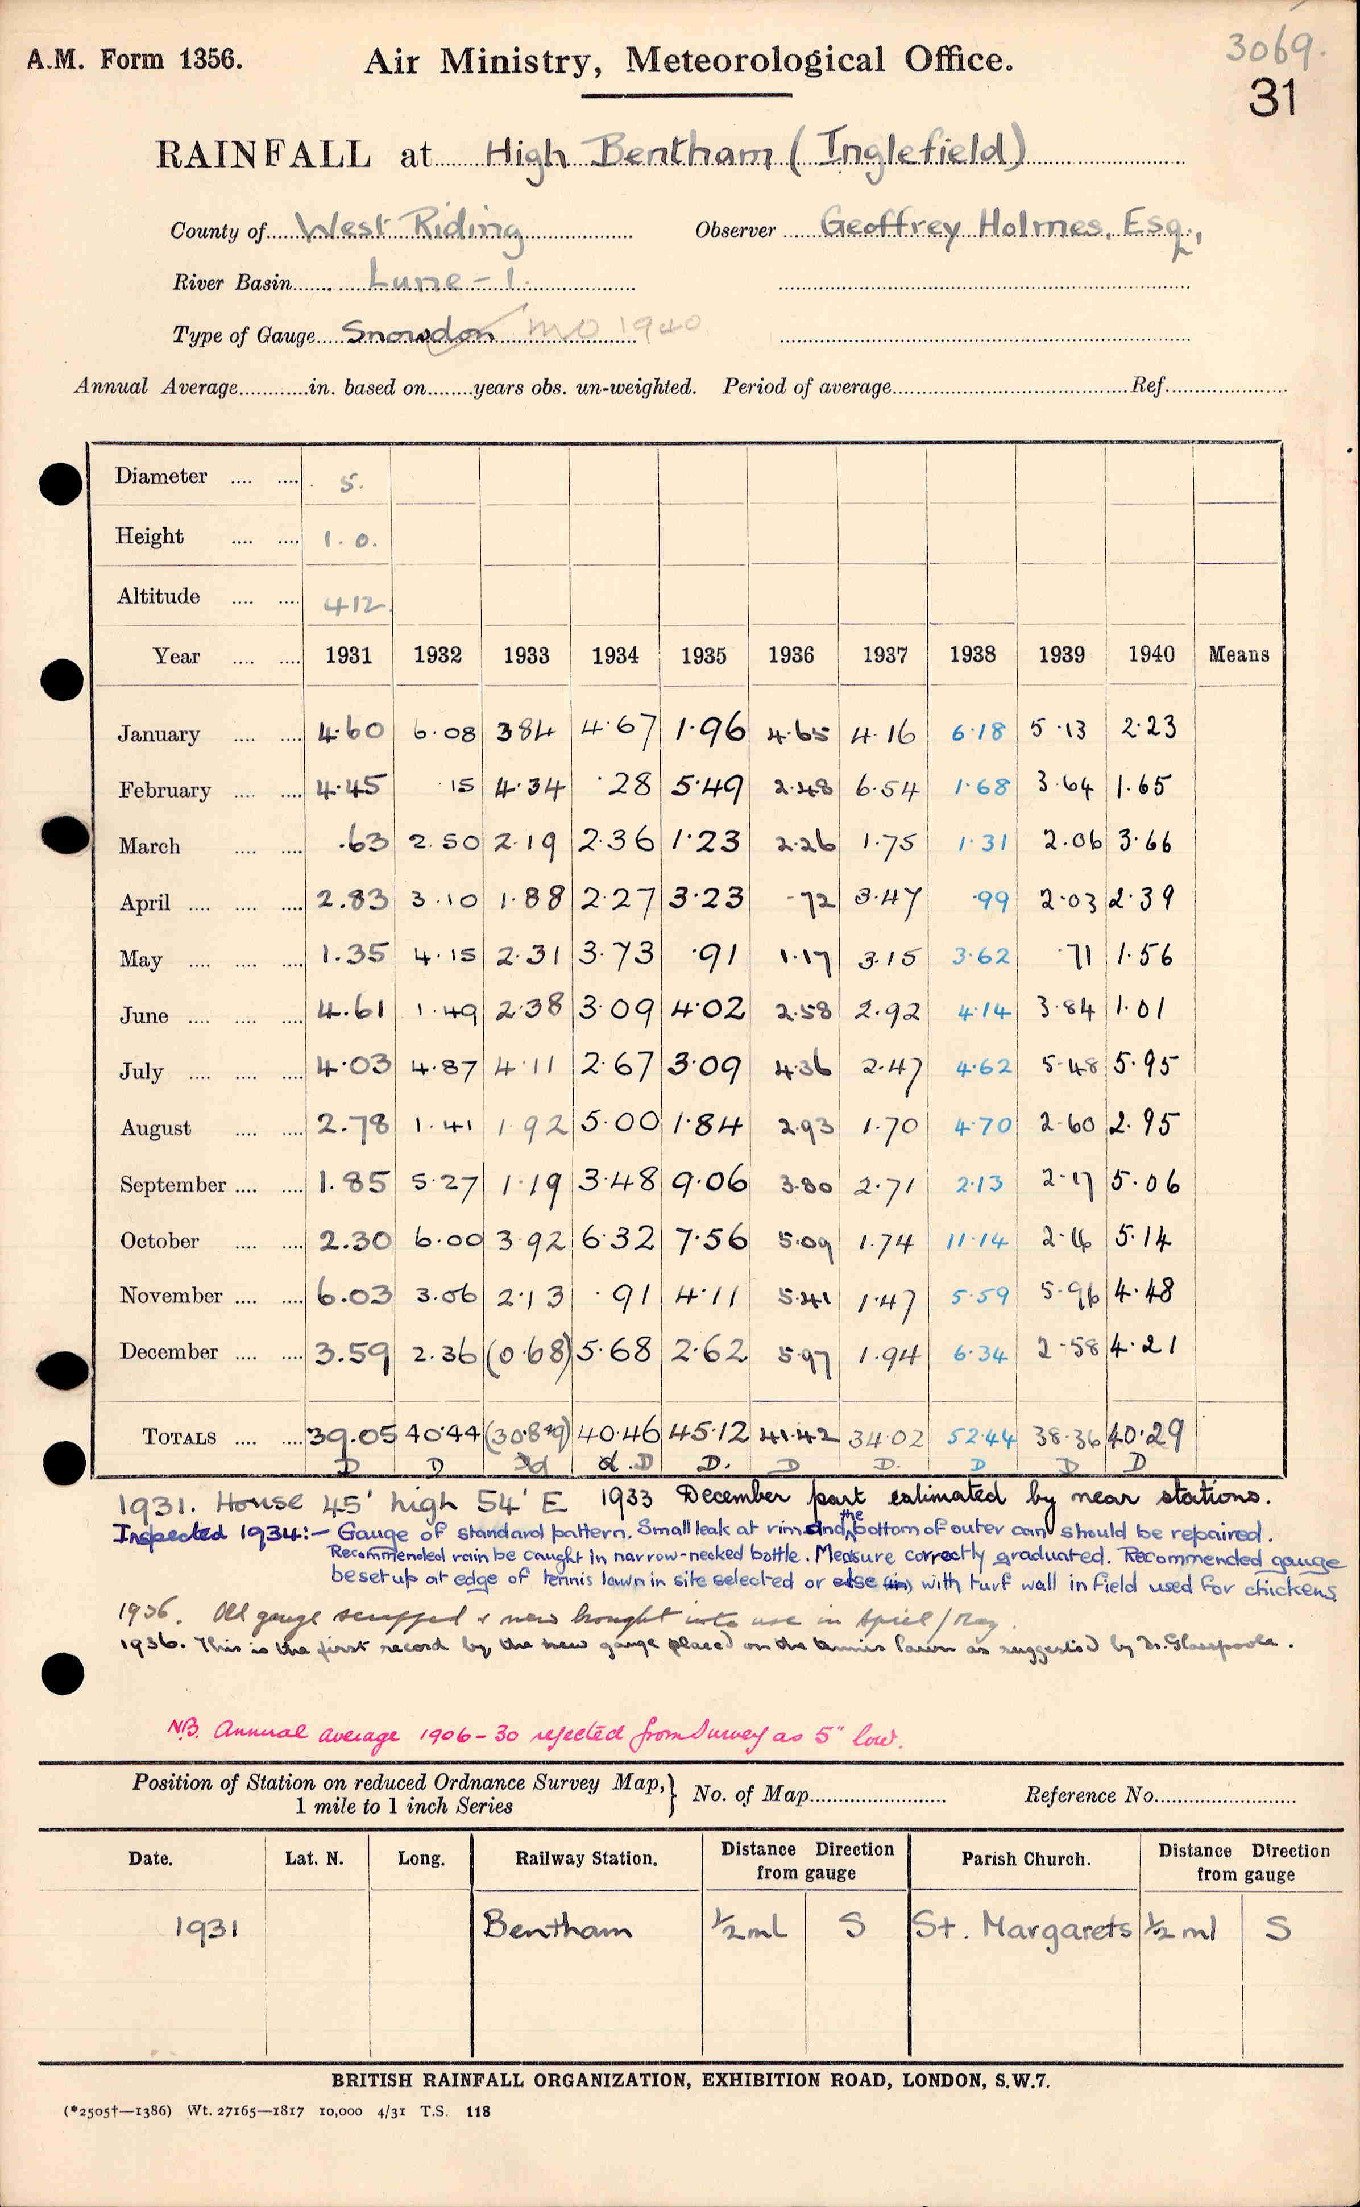 3069.
A.M. Form 1356. Air Ministry, Meteorological Office.
31
RAINFALL at High Bentham (Inglefield)
County of West Riding Observer Geoffrey Holmes, Esq.,
River Basin Lune - 1.
Type of Gauge Snowdon MO 1940
Annual Average............in. based on........years obs. un-weighted. Period of average........................Ref.....................
Diameter .... .... 5.
Height .... .... 1. 0.
Altitude .... .... 412.
Year .... .... 1931 1932 1933 1934 1935 1936 1937 1938 1939 1940 Means
January .... .... 4.60 6.08 3.84 4.67 1.96 4.65 4.16 6.18 5.13 2.23
February .... .... 4.45 .15 4.34 .28 5.49 2.48 6.54 1.68 3.64 1.65
March .... .... .63 2.50 2.19 2.36 1.23 2.26 1.75 1.31 2.06 3.66
April .... .... .... 2.83 3.10 1.88 2.27 3.23 .72 3.47 .99 2.03 2.39
May .... .... .... 1.35 4.15 2.31 3.73 .91 1.17 3.15 3.62 .71 1.56
June .... .... .... 4.61 1.49 2.38 3.09 4.02 2.58 2.92 4.14 3.84 1.01
July .... .... .... 4.03 4.87 4.11 2.67 3.09 4.36 2.47 4.62 5.48 5.95
August .... .... 2.78 1.41 1.92 5.00 1.84 2.93 1.70 4.70 2.60 2.95
September .... .... 1.85 5.27 1.19 3.48 9.06 3.80 2.71 2.13 2.17 5.06
October .... .... 2.30 6.00 3.92 6.32 7.56 5.09 1.74 11.14 2.16 5.14
November .... .... 6.03 3.06 2.13 .91 4.11 5.41 1.47 5.59 5.96 4.48
December .... .... 3.59 2.36 (0.68) 5.68 2.62 5.97 1.94 6.34 2.58 4.21
TOTALS .... .... 39.05 40.44 (30.89) 40.46 45.12 41.42 34.02 52.44 38.36 40.29
D D d D D. D D. D D D
1931. House 45' high 54' E 1933 December part estimated by near stations.
Inspected 1934:- Gauge of standard pattern. Small leak at rim and the bottom of outer can should be repaired.
Recommended rain be caught in narrow-necked bottle. Measure correctly graduated. Recommended gauge
be set up at edge of tennis lawn in site selected or else with turf wall in field used for chickens.
1936. Old gauge scrapped & new brought into use in April/May.
1936. This is the first record by the new gauge placed on the tennis lawn as suggested by Dr. Glasspoole.
N.B. Annual average 1906-30 rejected from Survey as 5" low.
Position of Station on reduced Ordnance Survey Map, } No. of Map........................ Reference No.........................
1 mile to 1 inch Series
Date. Lat. N. Long. Railway Station. Distance Direction from gauge Parish Church. Distance Direction from gauge
1931 Bentham ½ ml S St. Margarets ½ ml S
BRITISH RAINFALL ORGANIZATION, EXHIBITION ROAD, LONDON, S.W.7.
(*2505†—1386) Wt. 27165—1817 10,000 4/31 T.S. 118